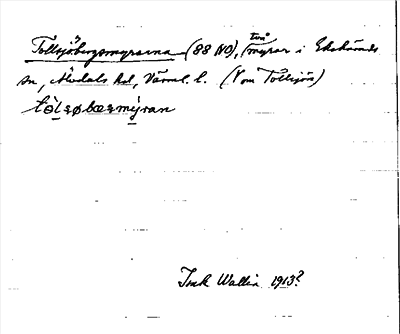 Tollsjöbergsmyrarna (88 NO), två myrar i Ekshärads
sn, Älvdals hd, Värml. l. (V om Tollsjön)
tòlsøbæsmýran
Ink Wallin 1913?